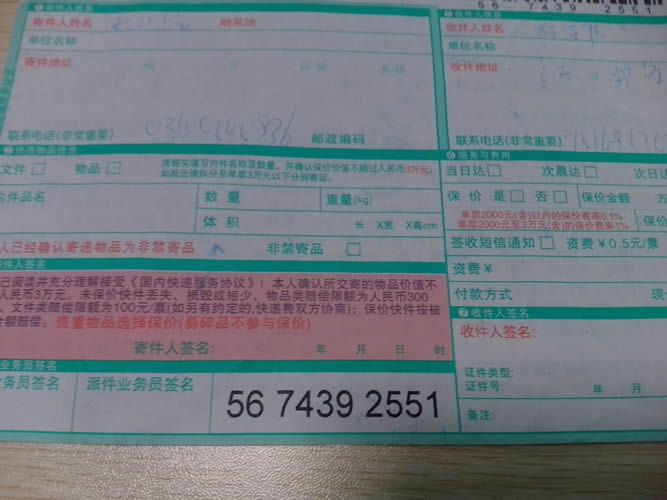 56 7439 2551
寄件人姓名 始发地
收件人姓名
单位名称
单位名称
寄件地址
收件地址
联系电话(非常重要) 邮政编码
联系电话(非常重要)
快递物品信息
服务与费用
文件 物品 请据实填写内件名称及数量，并确认保价价值不超过人民币3万元，
如超出请拆分至单票3万元以下分别寄运。
当日达 次晨达 次日达
内件品名 数量 重量(kg)
保价 是 否 保价金额 万
体积 长 X宽 X高cm
单票2000元(含)以内的保价费率0.1%
单票2000元至3万元(含)的保价费率1%
保价
人已经确认寄递物品为非禁寄品 非禁寄品
签收短信通知 资费￥0.5元/票
件人签名
资费￥
已阅读并充分理解接受《国内快递服务协议》！本人确认所交寄的物品价值不
人民币3万元。未保价快件丢失、损毁或短少，物品类赔偿限额为人民币300
、文件类赔偿限额为100元/票(如另有约定的,快递费双方协商)；保价快件按被
金额赔偿。贵重物品选择保价(易碎品不参与保价)
付款方式 现
收件人签名
收件人签名:
寄件人签名: 年 月 日 时
业务员签名
证件类型:
证件号: 年 月
业务员签名 派件业务员签名 56 7439 2551
备注: